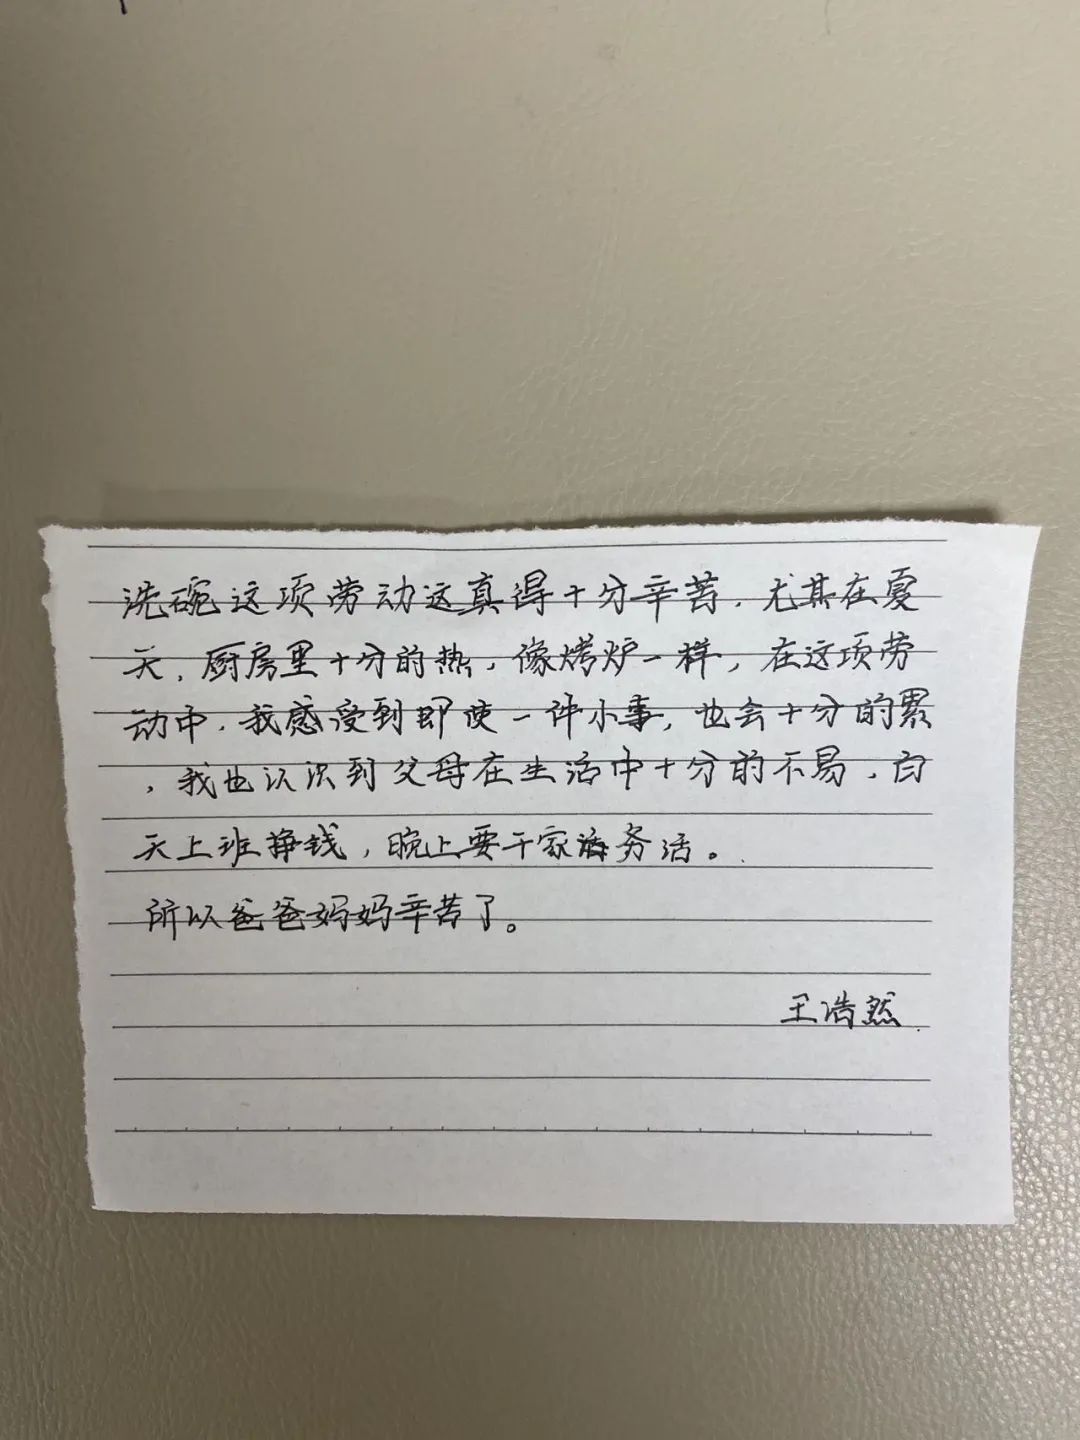 洗碗这项劳动这真得十分辛苦,尤其在夏
天,厨房里十分的热,像烤炉一样,在这项劳
动中,我感受到即使一件小事,也会十分的累
,我也认识到父母在生活中十分的不易,白
天上班挣钱,晚上要干家务活。
所以爸爸妈妈辛苦了。
王浩然